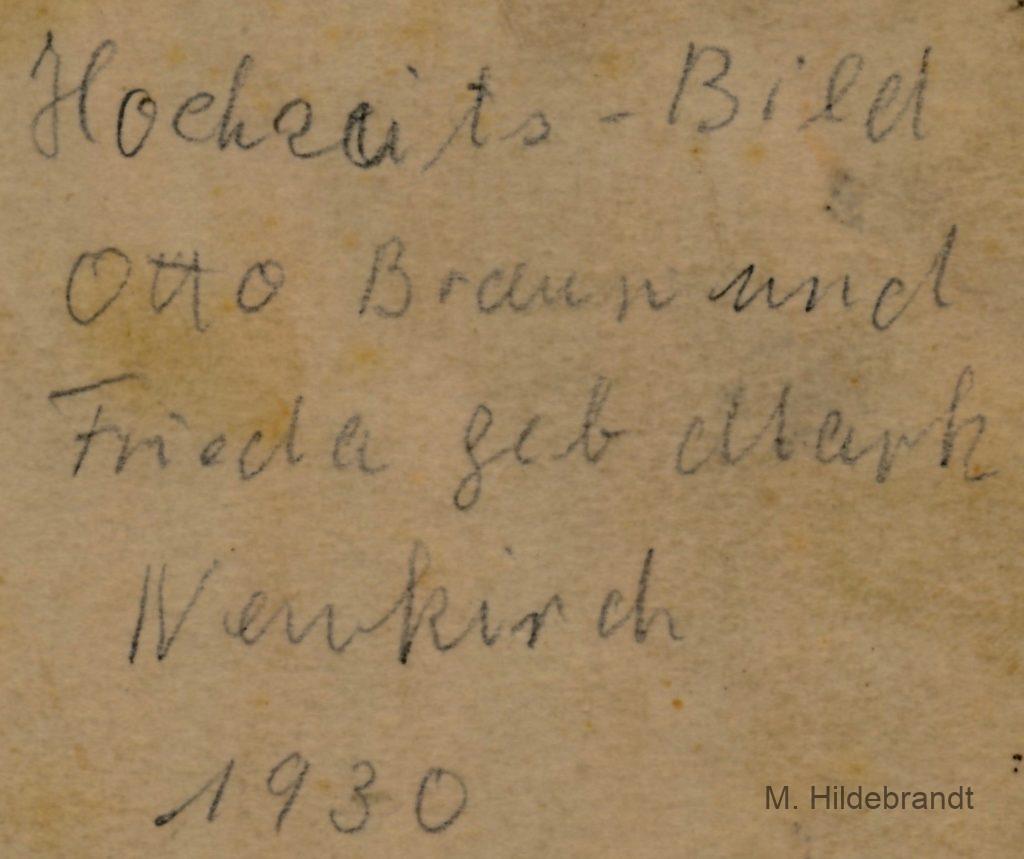 Hochzeits-Bild
Otto Braun und
Frieda geb Mark
Neukirch
1930
M. Hildebrandt